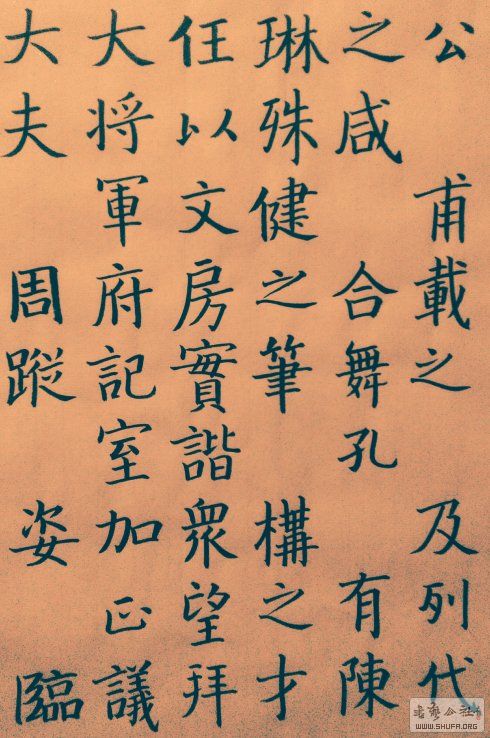 公 甫載之 及列代
之咸 合舞孔 有陳
琳殊健之筆 構之才
任以文房實諧衆望拜
大将軍府記室加正議
大夫 周蹤 姿 臨
WWW.SHUFA.ORG